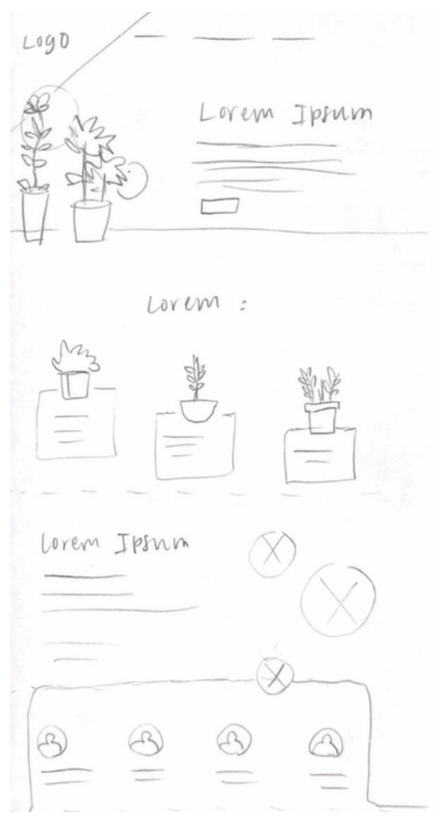 Logo
Lorem Ipsum
Lorem :
Lorem Ipsum